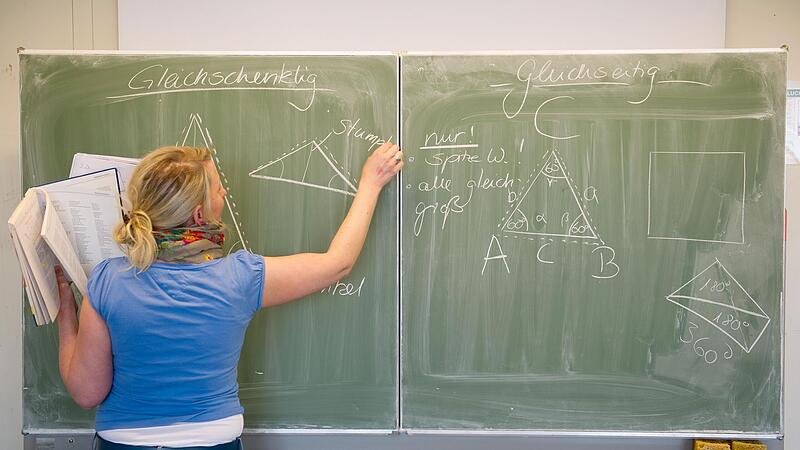 Gleichschenklig
Gleichseitig
nur!
• spitze W.!
• alle gleich
groß
C
60°
γ
b
a
α
β
60°
60°
A
c
B
180°
180°
360°